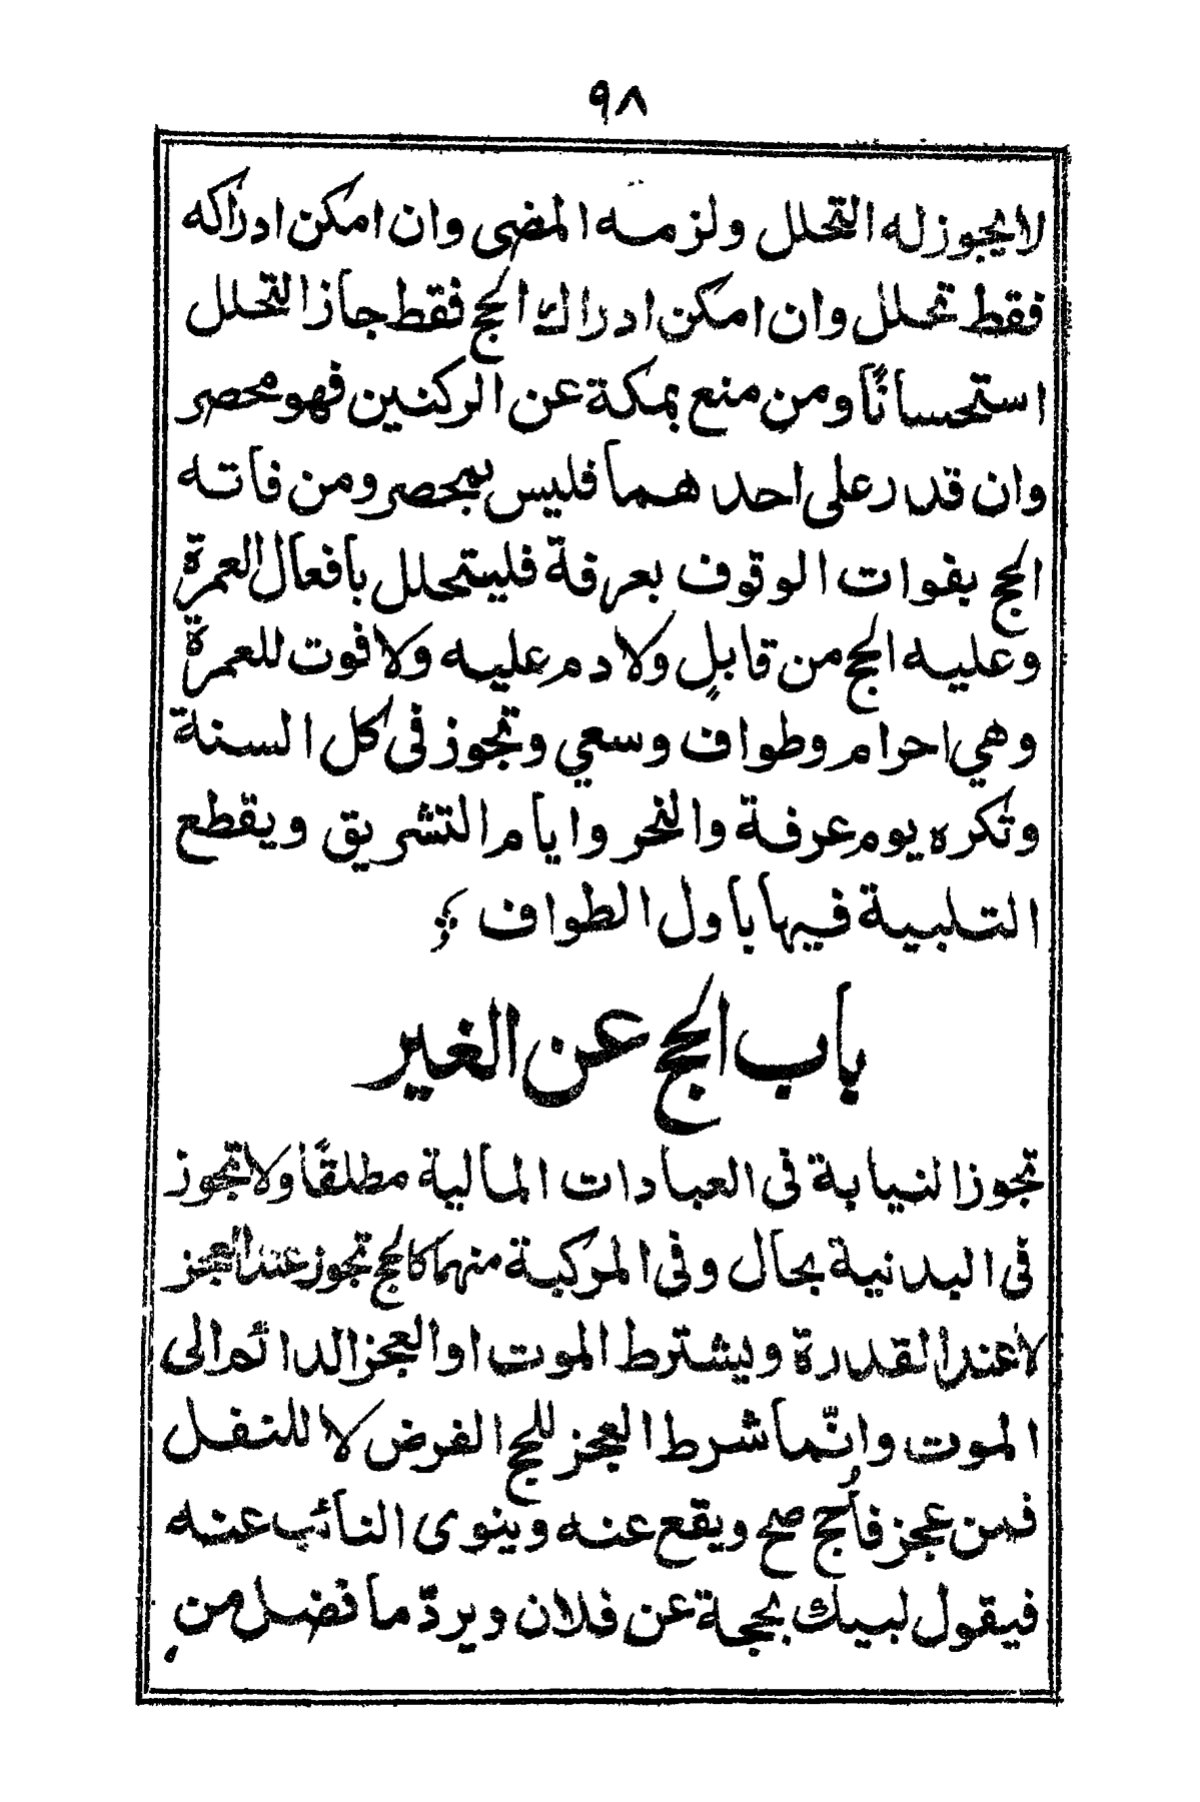 ٩٨
لا يجوز له التحلل ولزمه المضى وان امكن ادراكه
فقط تحلل وان امكن ادراك الحج فقط جاز التحلل
استحسانًا ومن منع بمكة عن الركنين فهو محصر
وان قدر على احدهما فليس بمحصر ومن فاته
الحج بفوات الوقوف بعرفة فليتحلل بأفعال العمرة
وعليه الحج من قابلٍ ولا دم عليه ولا فوت للعمرة
وهي احرام وطواف وسعي وتجوز فى كل السنة
وتكره يوم عرفة والنحر وايام التشريق ويقطع
التلبية فيها باول الطواف
باب الحج عن الغير
تجوز النيابة فى العبادات المالية مطلقًا ولا تجوز
فى البدنية بحال وفى المركبة منهما كالحج تجوز عند العجز
لا عند القدرة ويشترط الموت او العجز الدائم الى
الموت وانّما شرط العجز للحج الفرض لا للنفل
فمن عجز فأُحج صح ويقع عنه وينوى النائب عنه
فيقول لبيك بحجة عن فلان ويردّ ما فضل من